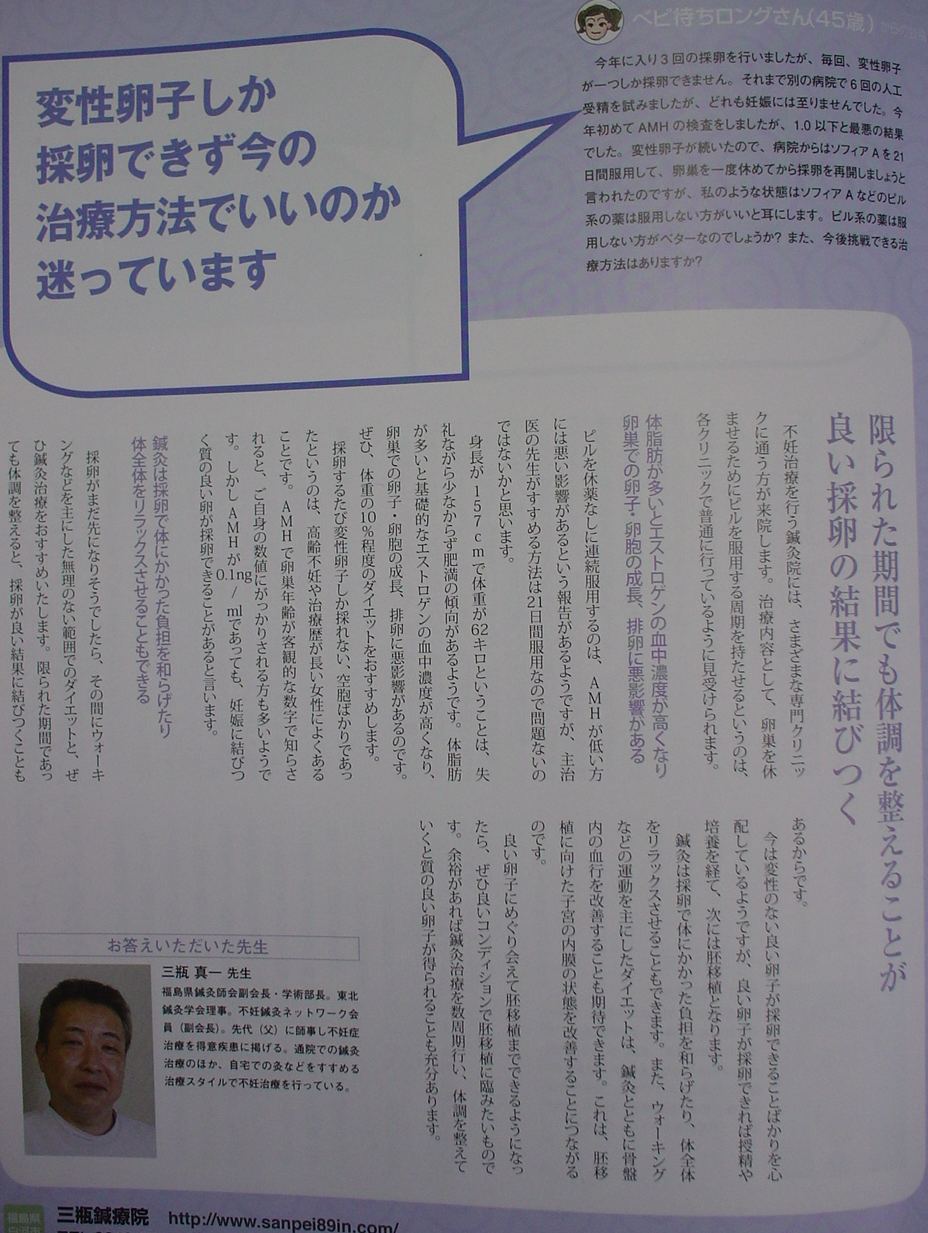 ベビ待ちロングさん(45歳)
今年に入り3回の採卵を行いましたが、毎回、変性卵子
が一つしか採卵できません。それまで別の病院で6回の人工
受精を試みましたが、どれも妊娠には至りませんでした。今
年初めてAMHの検査をしましたが、1.0以下と最悪の結果
でした。変性卵子が続いたので、病院からはソフィアAを21
日間服用して、卵巣を一度休めてから採卵を再開しましょうと
言われたのですが、私のような状態はソフィアAなどのピル
系の薬は服用しない方がいいと耳にします。ピル系の薬は服
用しない方がベターなのでしょうか? また、今後挑戦できる治
療方法はありますか?
変性卵子しか
採卵できず今の
治療方法でいいのか
迷っています
限られた期間でも体調を整えることが
良い採卵の結果に結びつく
不妊治療を行う鍼灸院には、さまざまな専門クリニッ
クに通う方が来院します。治療内容として、卵巣を休
ませるためにピルを服用する周期を持たせるというのは、
各クリニックで普通に行っているように見受けられます。
体脂肪が多いとエストロゲンの血中濃度が高くなり
卵巣での卵子・卵胞の成長、排卵に悪影響がある
ピルを休薬なしに連続服用するのは、AMHが低い方
には悪い影響があるという報告があるようですが、主治
医の先生がすすめる方法は21日間服用なので問題ないの
ではないかと思います。
身長が157cmで体重が62キロということは、失
礼ながら少なからず肥満の傾向があるようです。体脂肪
が多いと基礎的なエストロゲンの血中濃度が高くなり、
卵巣での卵子・卵胞の成長、排卵に悪影響があるのです。
ぜひ、体重の10%程度のダイエットをおすすめします。
採卵するたび変性卵子しか採れない、空胞ばかりであっ
たというのは、高齢不妊や治療歴が長い女性によくある
ことです。AMHで卵巣年齢が客観的な数字で知らさ
れると、ご自身の数値にがっかりされる方も多いようで
す。しかしAMHが0.1ng/mlであっても、妊娠に結びつ
く質の良い卵が採卵できることがあると言います。
鍼灸は採卵で体にかかった負担を和らげたり
体全体をリラックスさせることもできる
採卵がまだ先になりそうでしたら、その間にウォーキ
ングなどを主にした無理のない範囲でのダイエットと、ぜ
ひ鍼灸治療をおすすめいたします。限られた期間であっ
ても体調を整えると、採卵が良い結果に結びつくことも
あるからです。
今は変性のない良い卵子が採卵できることばかりを心
配しているようですが、良い卵子が採卵できれば授精や
培養を経て、次には胚移植となります。
鍼灸は採卵で体にかかった負担を和らげたり、体全体
をリラックスさせることもできます。また、ウォーキング
などの運動を主にしたダイエットは、鍼灸とともに骨盤
内の血行を改善することも期待できます。これは、胚移
植に向けた子宮の内膜の状態を改善することにつながる
のです。
良い卵子にめぐり会えて胚移植までできるようになっ
たら、ぜひ良いコンディションで胚移植に臨みたいもので
す。余裕があれば鍼灸治療を数周期行い、体調を整えて
いくと質の良い卵子が得られることも充分あります。
お答えいただいた先生
三瓶 真一 先生
福島県鍼灸師会副会長・学術部長。東北
鍼灸学会理事。不妊鍼灸ネットワーク会
員(副会長)。先代(父)に師事し不妊症
治療を得意疾患に掲げる。通院での鍼灸
治療のほか、自宅での灸などをすすめる
治療スタイルで不妊治療を行っている。
福島県
三瓶鍼療院 http://www.sanpei89in.com/